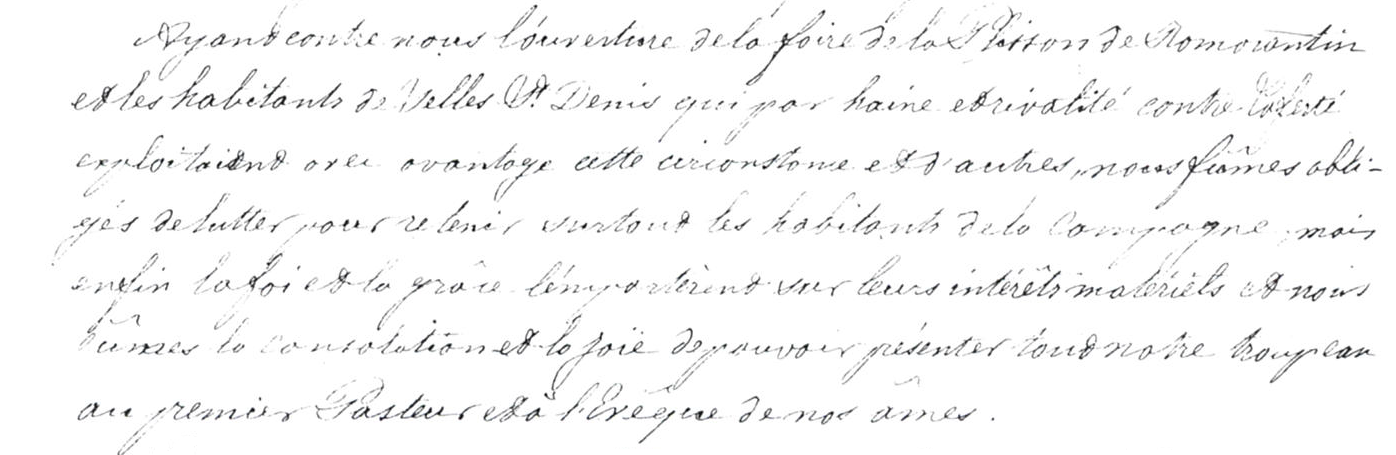 Ayant contre nous l'ouverture de la foire de la Plisson de Romorantin
et les habitants de Selles St. Denis qui par haine et rivalité contre Laferté
exploitaient avec avantage cette circonstance et d'autres, nous fûmes obli-
gés de lutter pour retenir surtout les habitants de la campagne, mais
enfin la foi et la grâce l'emportèrent sur leurs intérêts matériels et nous
eûmes la consolation et la joïe de pouvoir présenter tout notre troupeau
au premier Pasteur et à l'Evêque de nos âmes.